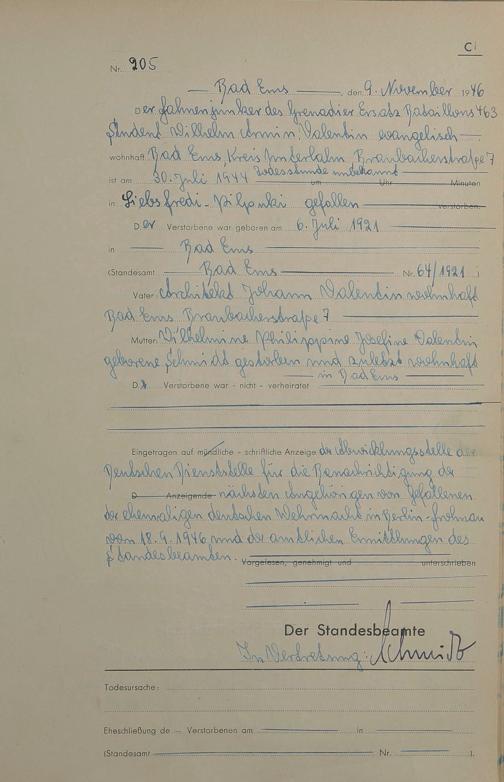 C
Nr. 205
Bad Ems, den 9. November 1946
Der Fahnenjunker des Grenadier Ersatz Bataillons 463
Student Wilhelm Armin Valentin evangelisch
wohnhaft Bad Ems, Kreis Unterlahn, Braubacherstraße 7
ist am 30. Juli 1944 Todesstunde unbekannt um Uhr Minuten
in gefallen verstorben.
Der Verstorbene war geboren am 6. Juli 1921
in Bad Ems
(Standesamt Bad Ems Nr. 64/1921 )
Vater: Architekt Johann Valentin wohnhaft
Bad Ems Braubacherstraße 7
Mutter: Wilhelmine Philippine Josefine Valentin
geborene Schmidt gestorben und zuletzt wohnhaft
in Bad Ems
D. Verstorbene war - nicht - verheiratet
Eingetragen auf mündliche - schriftliche Anzeige der Abwicklungsstelle der
Deutschen Dienststelle für die Benachrichtigung der
D Anzeigende nächsten Angehörigen von Gefallenen
der ehemaligen deutschen Wehrmacht in Berlin-Frohnau
vom 18.9.1946 und der amtlichen Ermittlungen des
Standesbeamten.
Vorgelesen, genehmigt und unterschrieben
Der Standesbeamte
In Vertretung: Schmidt
Todesursache:
Eheschließung de Verstorbenen am in
(Standesamt Nr. ).